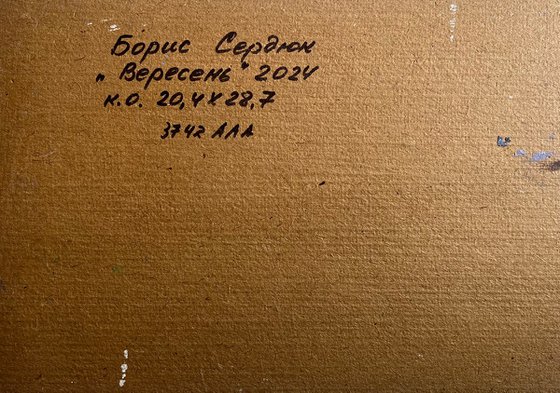 Борис Сердюк
„Вересень" 2024
к.о. 20,4 х 28,7
3742 ААА